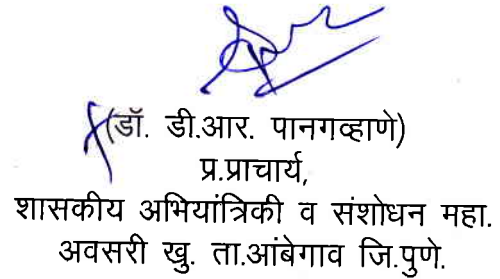 (डॉ. डी.आर. पानगव्हाणे)
प्र.प्राचार्य,
शासकीय अभियांत्रिकी व संशोधन महा.
अवसरी खु. ता.आंबेगाव जि.पुणे.